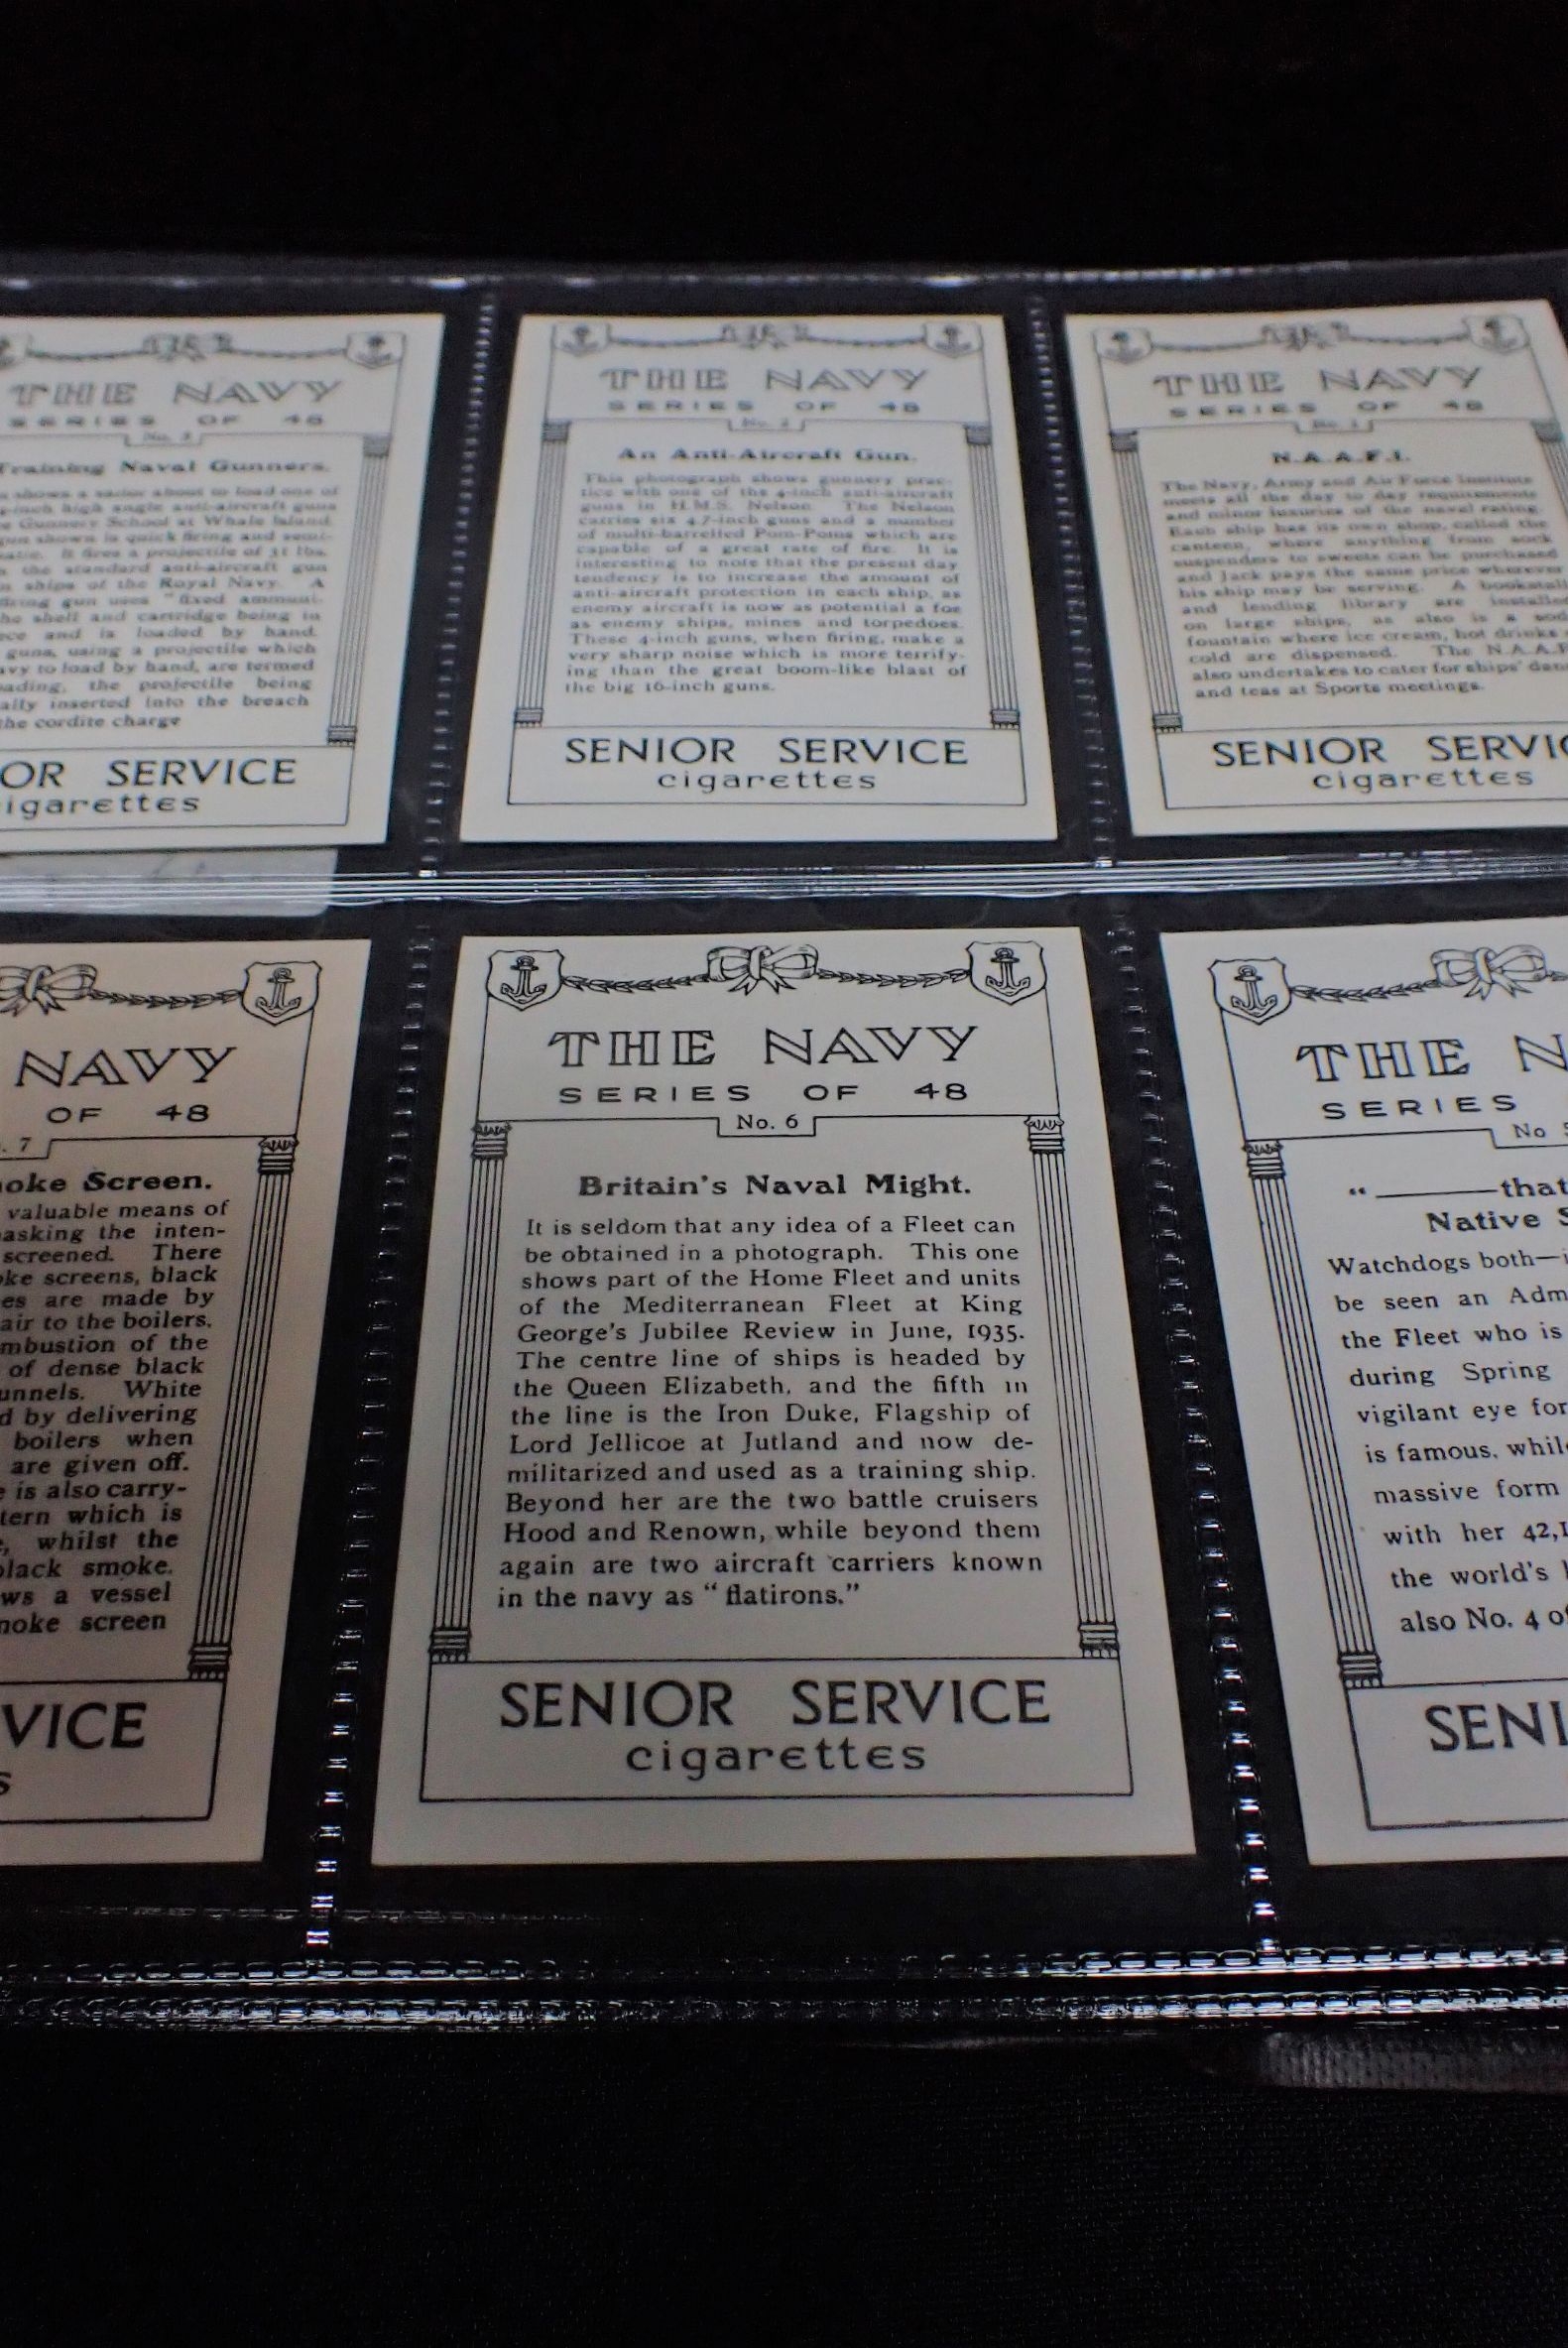 THE NAVY
SERIES OF 48
No. 3
Training Naval Gunners.
shows a sailor about to load one of
-inch high angle anti-aircraft guns
Gunnery School at Whale Island.
gun shown is quick firing and semi-
matic. It fires a projectile of 31 lbs.
the standard anti-aircraft gun
in ships of the Royal Navy. A
firing gun uses "fixed ammuni-
the shell and cartridge being in
and is loaded by hand.
guns, using a projectile which
avy to load by hand, are termed
ading, the projectile being
ally inserted into the breach
the cordite charge
OR SERVICE
igarettes
THE NAVY
SERIES OF 48
No. 2
An Anti-Aircraft Gun.
This photograph shows gunnery prac-
tice with one of the 4-inch anti-aircraft
guns in H.M.S. Nelson. The Nelson
carries six 4.7-inch guns and a number
of multi-barrelled Pom-Poms which are
capable of a great rate of fire. It is
interesting to note that the present day
tendency is to increase the amount of
anti-aircraft protection in each ship, as
enemy aircraft is now as potential a foe
as enemy ships, mines and torpedoes.
These 4-inch guns, when firing, make a
very sharp noise which is more terrify-
ing than the great boom-like blast of
the big 16-inch guns.
SENIOR SERVICE
cigarettes
THE NAVY
SERIES OF 48
No. 1
N.A.A.F.I.
The Navy, Army and Air Force Institute
meets all the day to day requirements
and minor luxuries of the naval rating.
Each ship has its own shop, called the
canteen, where anything from sock
suspenders to sweets can be purchased
and Jack pays the same price wherever
his ship may be serving. A bookstall
and lending library are installed
on large ships, as also is a
fountain where ice cream, hot drinks
cold are dispensed. The N.A.A.F
also undertakes to cater for ships' dan
and teas at Sports meetings.
SENIOR SERVIC
cigarettes
NAVY
OF 48
. 7
oke Screen.
valuable means of
asking the inten-
screened. There
ke screens, black
es are made by
air to the boilers.
mbustion of the
of dense black
unnels. White
d by delivering
boilers when
are given off.
e is also carry-
tern which is
e, whilst the
black smoke.
ws a vessel
moke screen
VICE
s
THE NAVY
SERIES OF 48
No. 6
Britain's Naval Might.
It is seldom that any idea of a Fleet can
be obtained in a photograph. This one
shows part of the Home Fleet and units
of the Mediterranean Fleet at King
George's Jubilee Review in June, 1935.
The centre line of ships is headed by
the Queen Elizabeth, and the fifth in
the line is the Iron Duke, Flagship of
Lord Jellicoe at Jutland and now de-
militarized and used as a training ship.
Beyond her are the two battle cruisers
Hood and Renown, while beyond them
again are two aircraft carriers known
in the navy as "flatirons."
SENIOR SERVICE
cigarettes
THE N
SERIES
No 5
"———that
Native S
Watchdogs both—i
be seen an Adm
the Fleet who is
during Spring
vigilant eye for
is famous, while
massive form
with her 42,1
the world's l
also No. 4 of
SENI